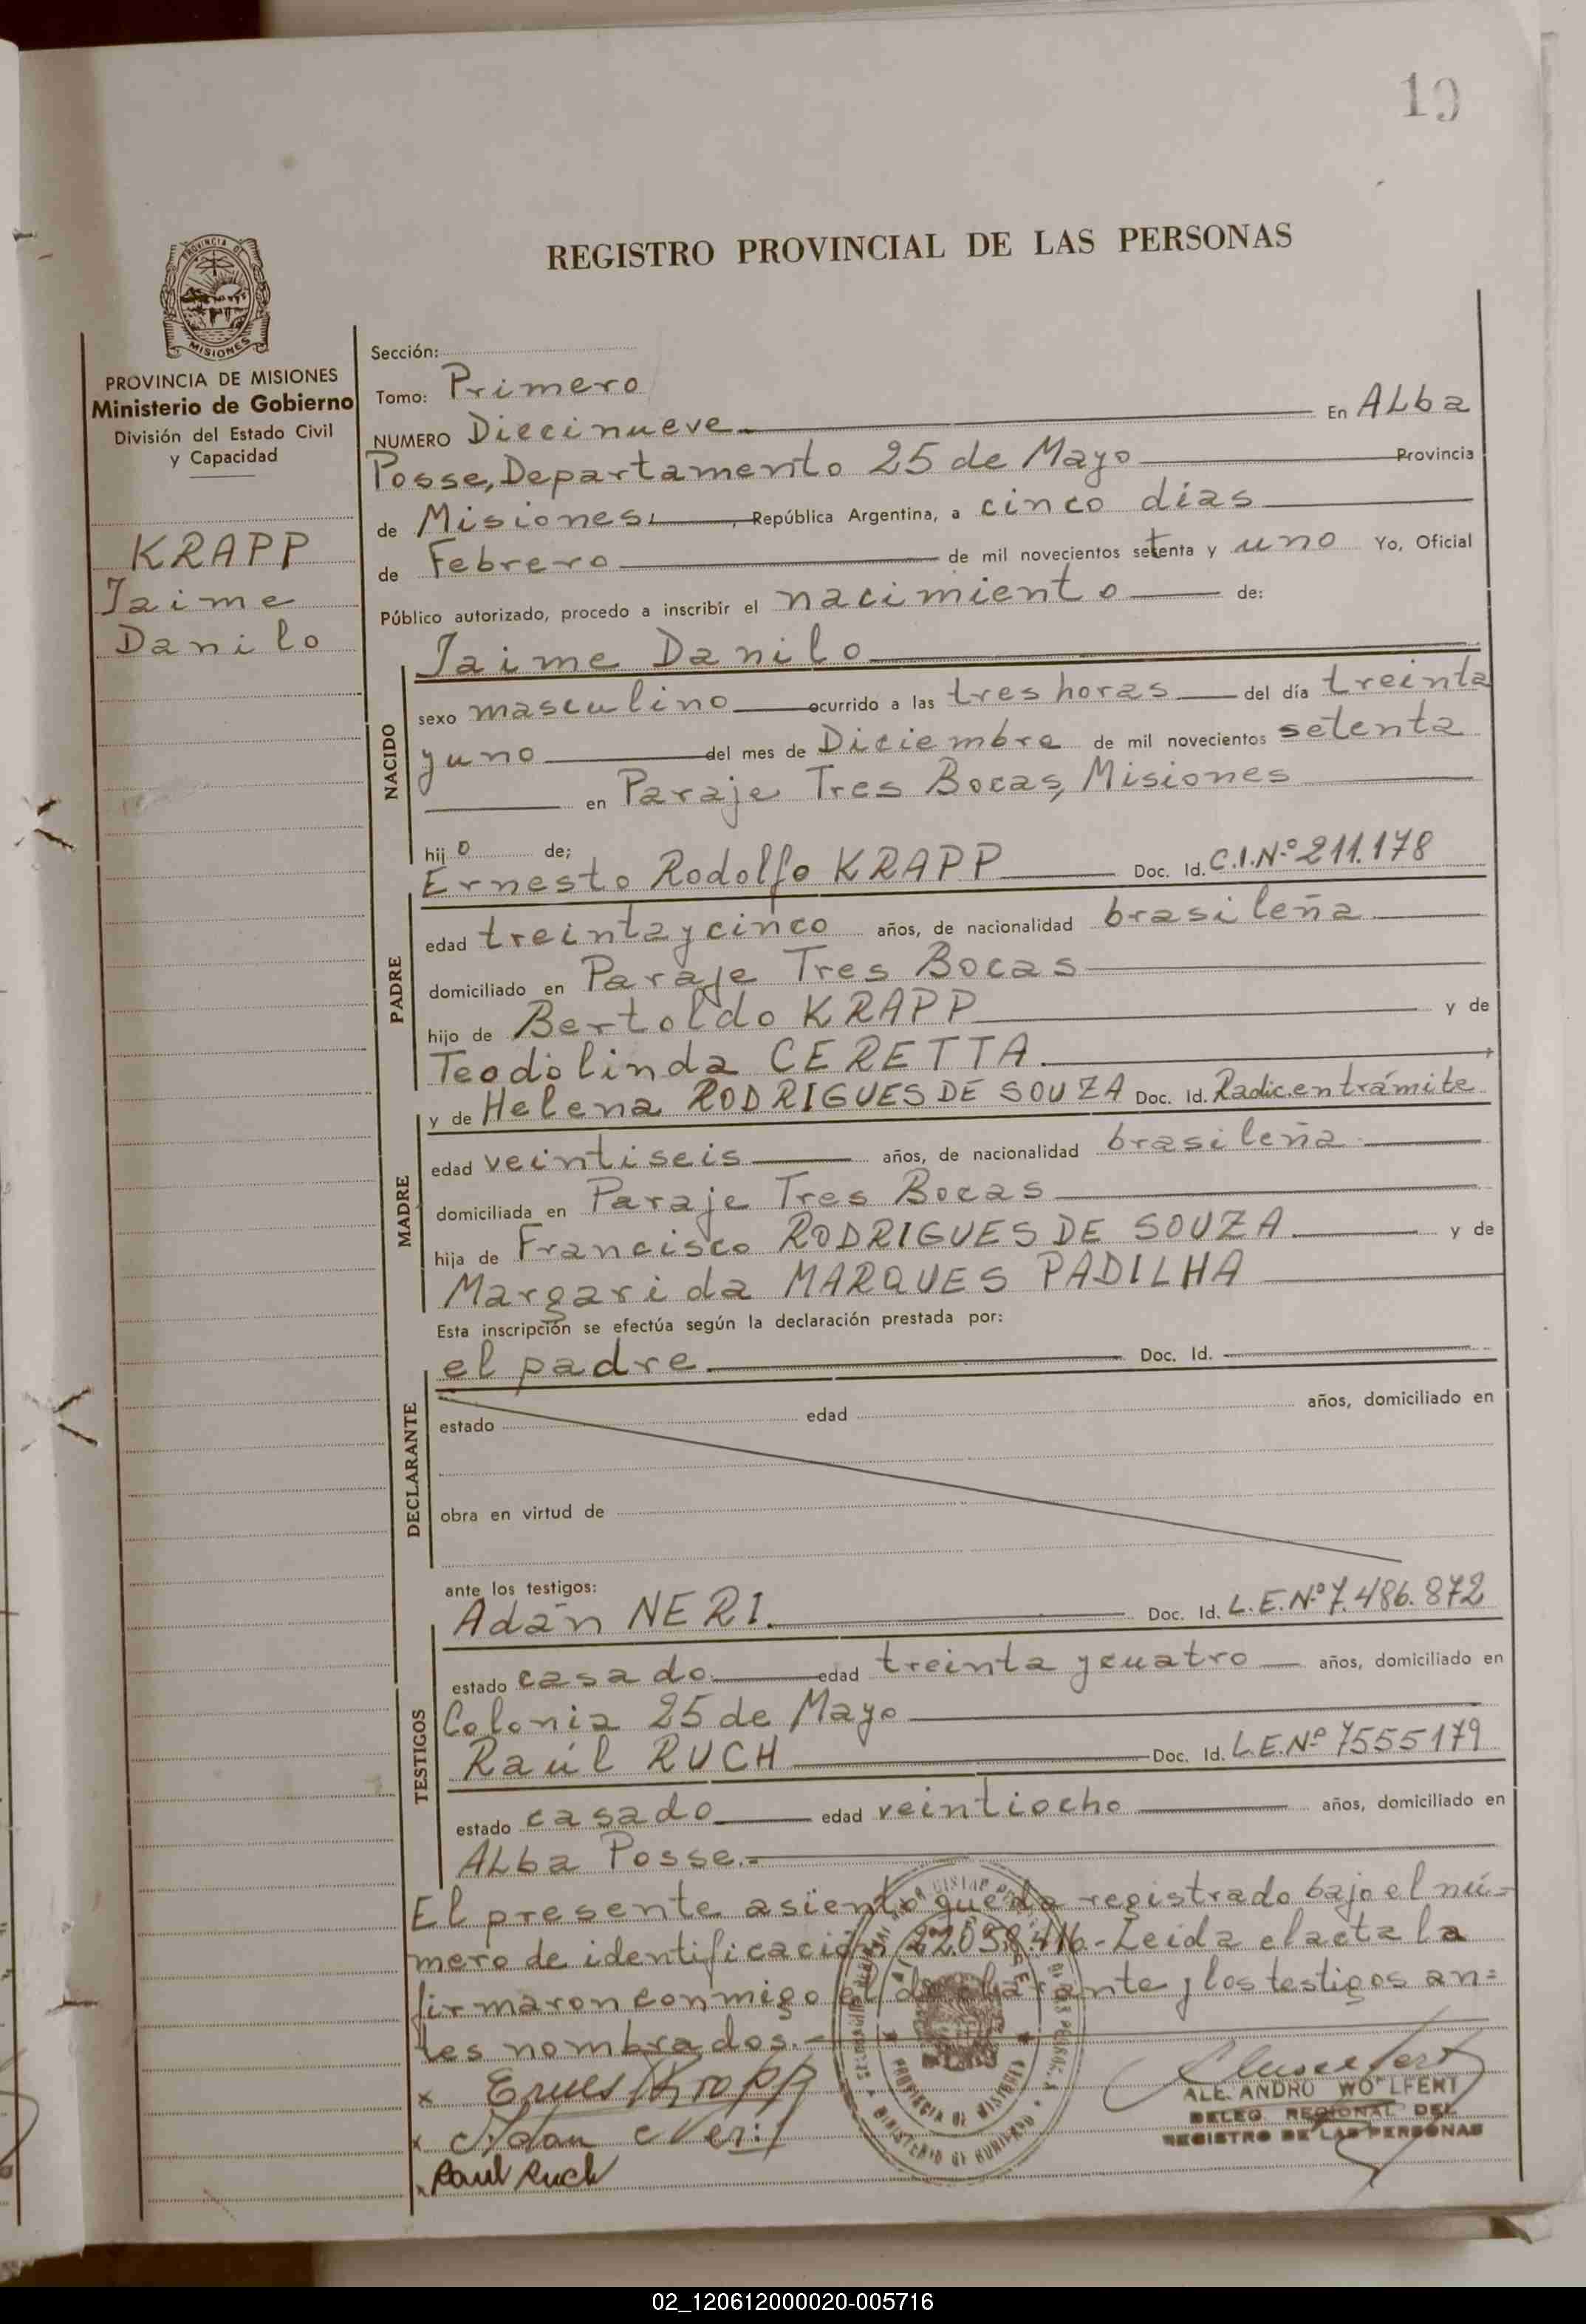 19
REGISTRO PROVINCIAL DE LAS PERSONAS
PROVINCIA DE MISIONES
PROVINCIA DE MISIONES
Ministerio de Gobierno
División del Estado Civil
y Capacidad
KRAPP
Jaime
Danilo
Sección:
Tomo: Primero
NUMERO Diecinueve.— En ALba
Posse, Departamento 25 de Mayo — Provincia
de Misiones, —, República Argentina, a cinco días
de Febrero — de mil novecientos setenta y uno Yo, Oficial
Público autorizado, procedo a inscribir el nacimiento — de:
NACIDO
Jaime Danilo
sexo masculino — ocurrido a las tres horas — del día treinta
y uno — del mes de Diciembre de mil novecientos setenta
— en Paraje Tres Bocas, Misiones
hijo de;
PADRE
Ernesto Rodolfo KRAPP — Doc. Id. C.I.Nº 211.178
edad treinta y cinco años, de nacionalidad brasileña
domiciliado en Paraje Tres Bocas
hijo de Bertoldo KRAPP — y de
Teodolinda CERETTA.
MADRE
y de Helena RODRIGUES DE SOUZA Doc. Id. Radic. en trámite
edad veintiseis — años, de nacionalidad brasileña
domiciliada en Paraje Tres Bocas
hija de Francisco RODRIGUES DE SOUZA. — y de
Margarida MARQUES PADILHA
Esta inscripción se efectúa según la declaración prestada por:
DECLARANTE
el padre. — Doc. Id. —
estado edad años, domiciliado en
obra en virtud de
ante los testigos:
TESTIGOS
Adán NERI. — Doc. Id. L.E.Nº 7.486.872
estado casado. — edad treinta y cuatro — años, domiciliado en
Colonia 25 de Mayo
Raúl RUCH — Doc. Id. L.E.Nº 7555179
estado casado — edad veintiocho — años, domiciliado en
ALba Posse.-
El presente asiento queda registrado bajo el nú-
mero de identificación 22.058.416.- Leida el acta la
firmaron conmigo el declarante y los testigos an=
tes nombrados.-
x Ernes Krapp
x Adan Neri
x Raul Ruch
PROVINCIA DE MISIONES
MINISTERIO DE GOBIERNO
ALE ANDRO WO LFERT
DELEG. REGIONAL DEL
REGISTRO DE LAS PERSONAS
02_120612000020-005716